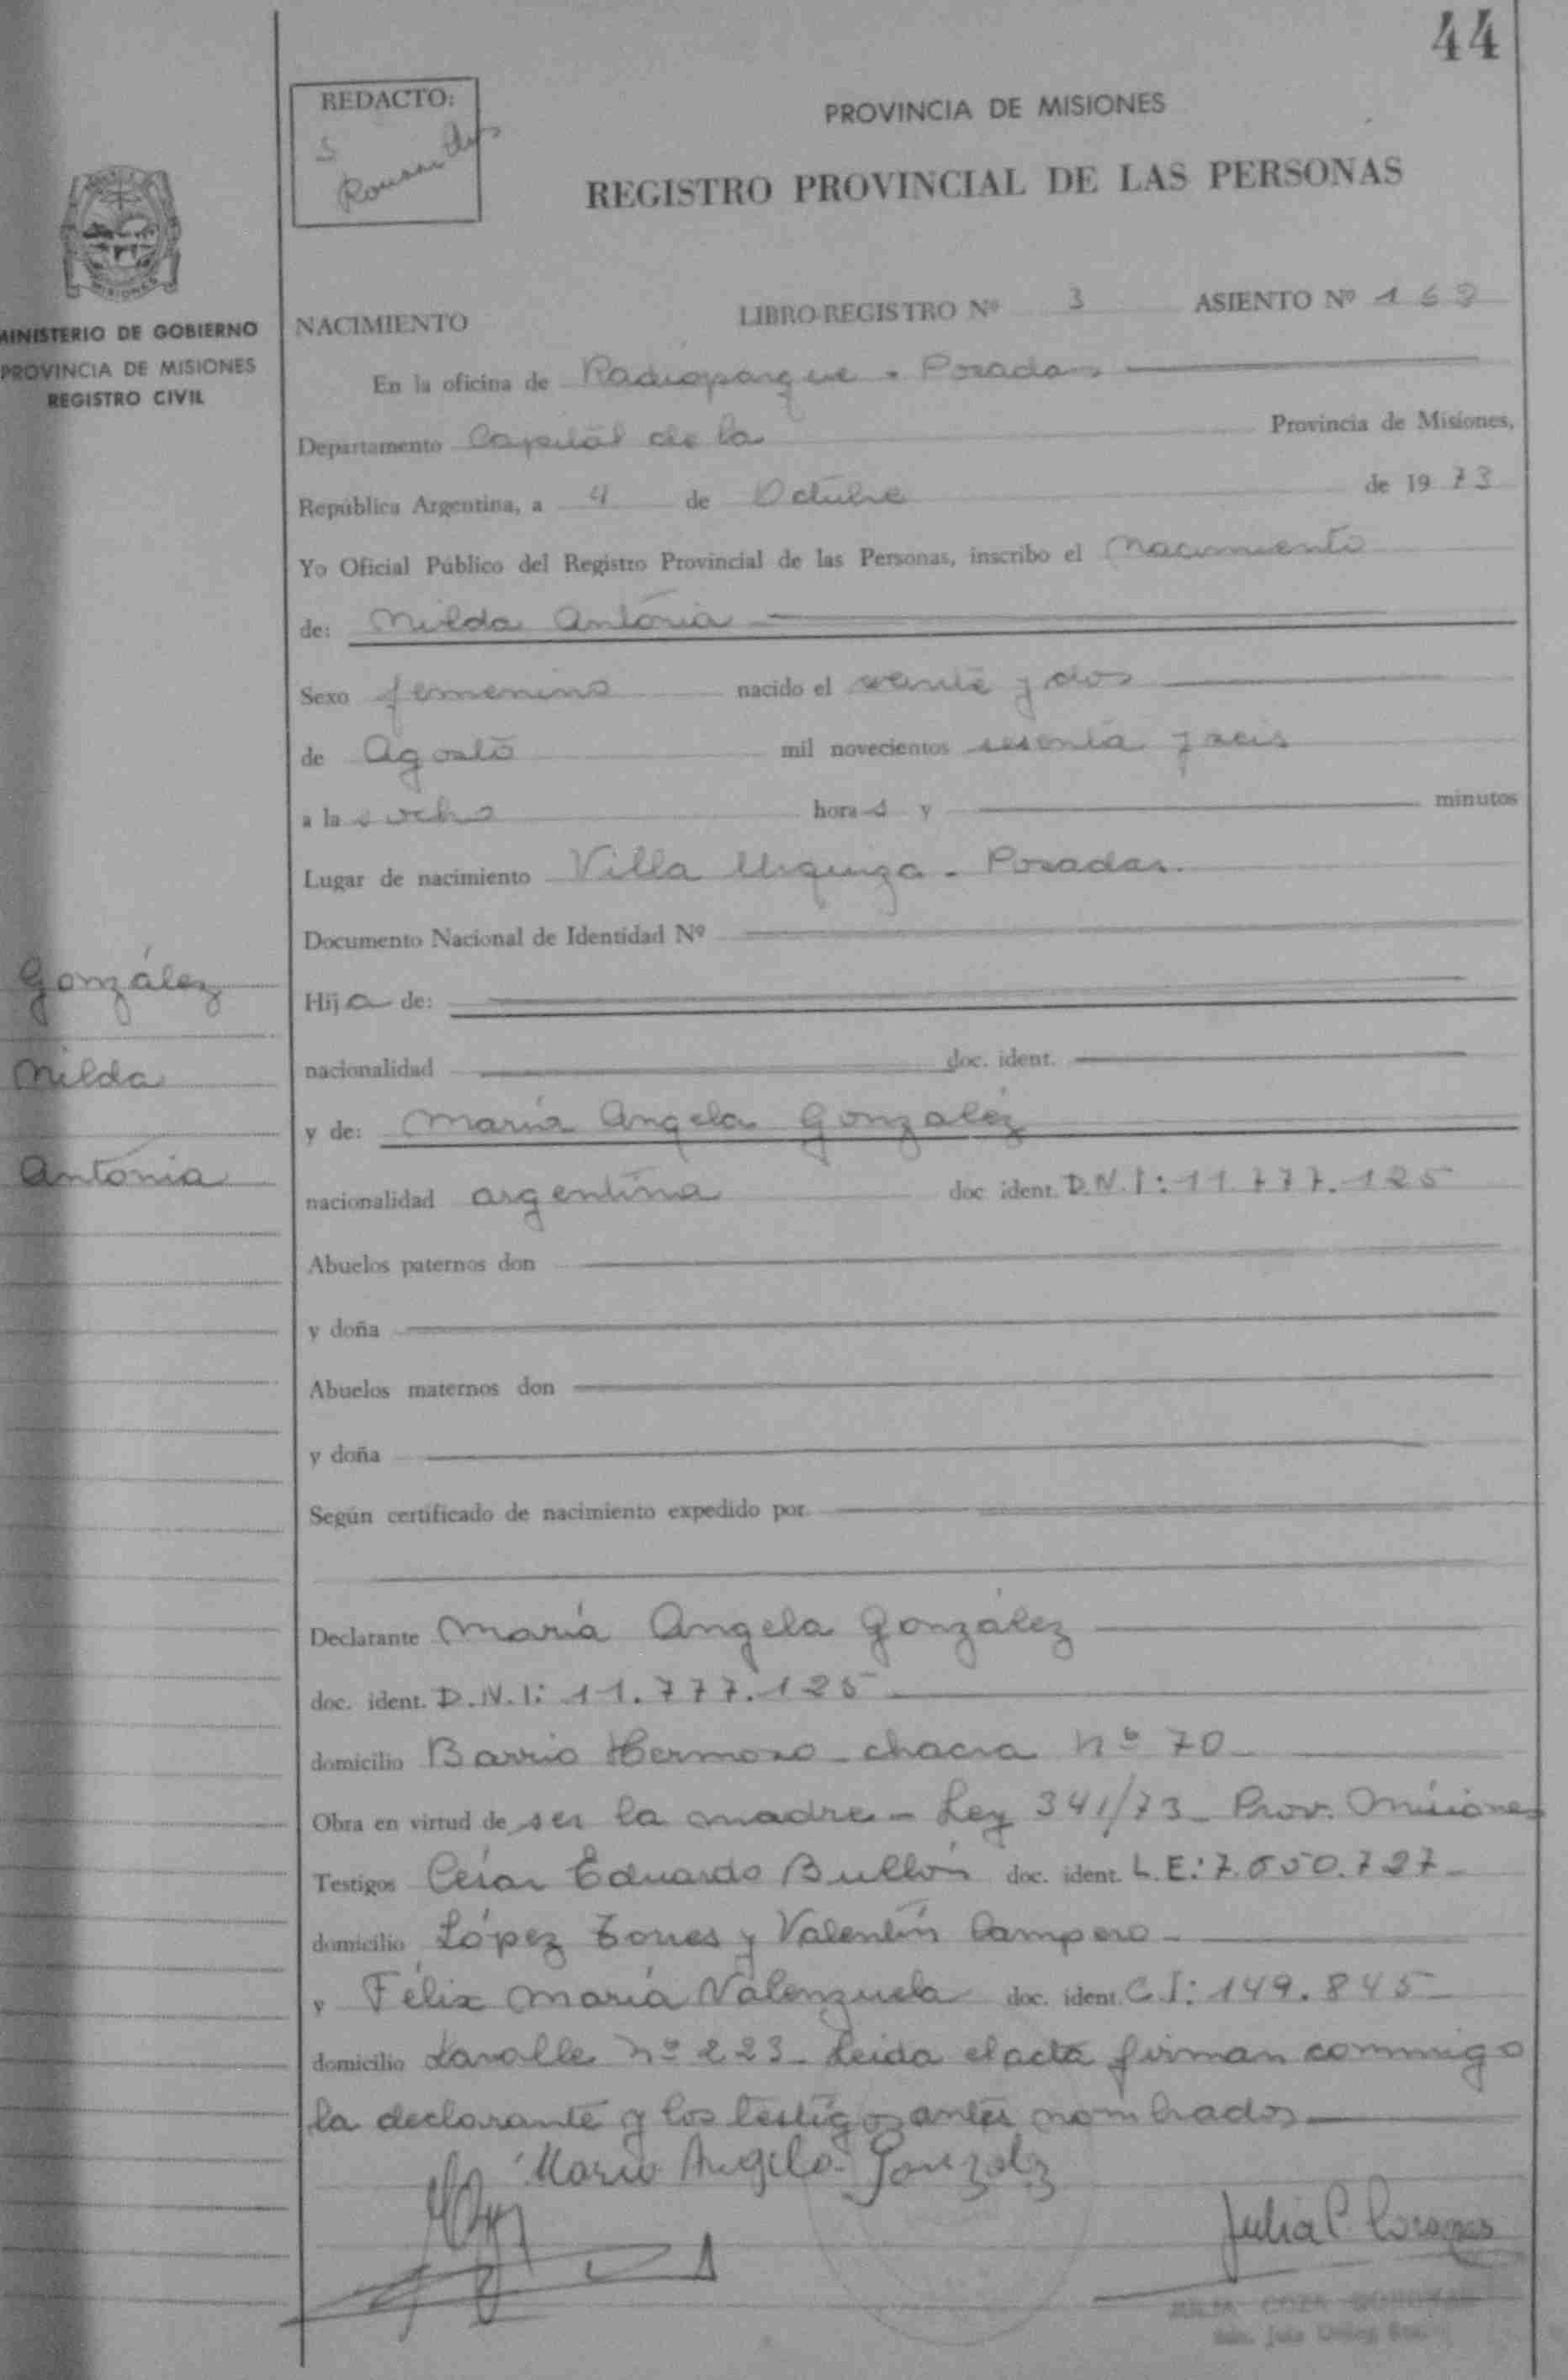 44
REDACTO:
S
PROVINCIA DE MISIONES
REGISTRO PROVINCIAL DE LAS PERSONAS
MISIONES
MINISTERIO DE GOBIERNO
PROVINCIA DE MISIONES
REGISTRO CIVIL
NACIMIENTO LIBRO-REGISTRO Nº 3 ASIENTO Nº 169
En la oficina de Radioparque - Posadas
Departamento Capital de la Provincia de Misiones,
República Argentina, a 4 de Octubre de 1973
Yo Oficial Público del Registro Provincial de las Personas, inscribo el Nacimiento
de: Nilda Antonia
Sexo femenino nacido el veinte y dos
de Agosto mil novecientos sesenta y seis
a las ocho horas y minutos
Lugar de nacimiento Villa Urquiza - Posadas.
Documento Nacional de Identidad Nº
González
Hija de:
nacionalidad doc. ident.
Nilda
y de: María Angela González
Antonia
nacionalidad argentina doc ident. D.N.I: 11.777.125
Abuelos paternos don
y doña
Abuelos maternos don
y doña
Según certificado de nacimiento expedido por
Declarante María Angela González
doc. ident. D.N.I: 11.777.125
domicilio Barrio Hermoso - chacra nº 70
Obra en virtud de ser la madre - Ley 341/73 - Prov. Misiones
Testigos César Eduardo Bullón doc. ident. L.E: 7.550.727
domicilio López Torres y Valentín Campero -
y Félix María Valenzuela doc. ident. C.I: 149.845
domicilio Lavalle nº 223 - Leida el acta firman conmigo
la declarante y los testigos antes nombrados
Maria Angela Gonzalez
Julia C.
JULIA